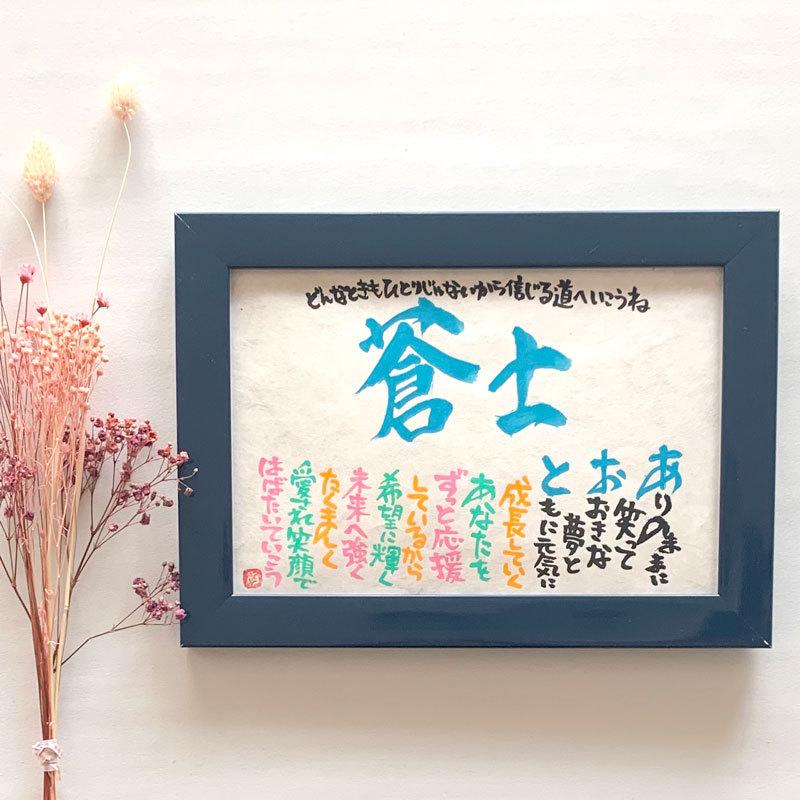 どんなときもひとりじゃないから信じる道へいこうね
蒼士
ありのままに
笑って
おおきな
夢と
ともに元気に
成長していく
あなたを
ずっと応援
しているから
希望に輝く
未来へ強く
たくましく
愛され笑顔で
はばたいていこう